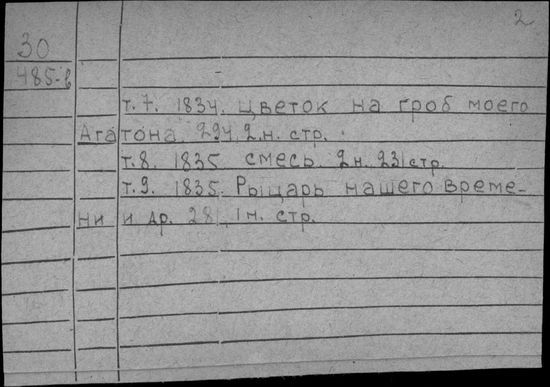 2
30
485-в
т.7. 1834. цветок на гроб моего
Агатона. 294, 2 н. стр.
т.8. 1835 смесь. 2 н. 231 стр.
т.9. 1835. Рыцарь нашего време-
ни и др. 281, 1 н. стр.